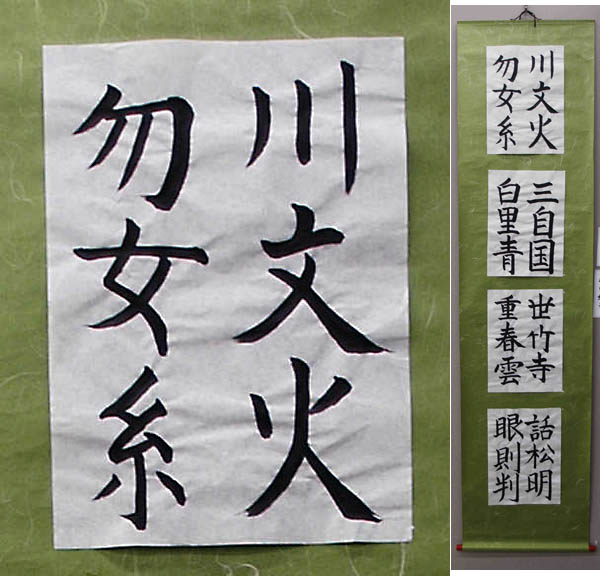 川文火
勿女糸
川文火
勿女糸
三自国
白里青
世竹寺
重春雲
話松明
眼則判